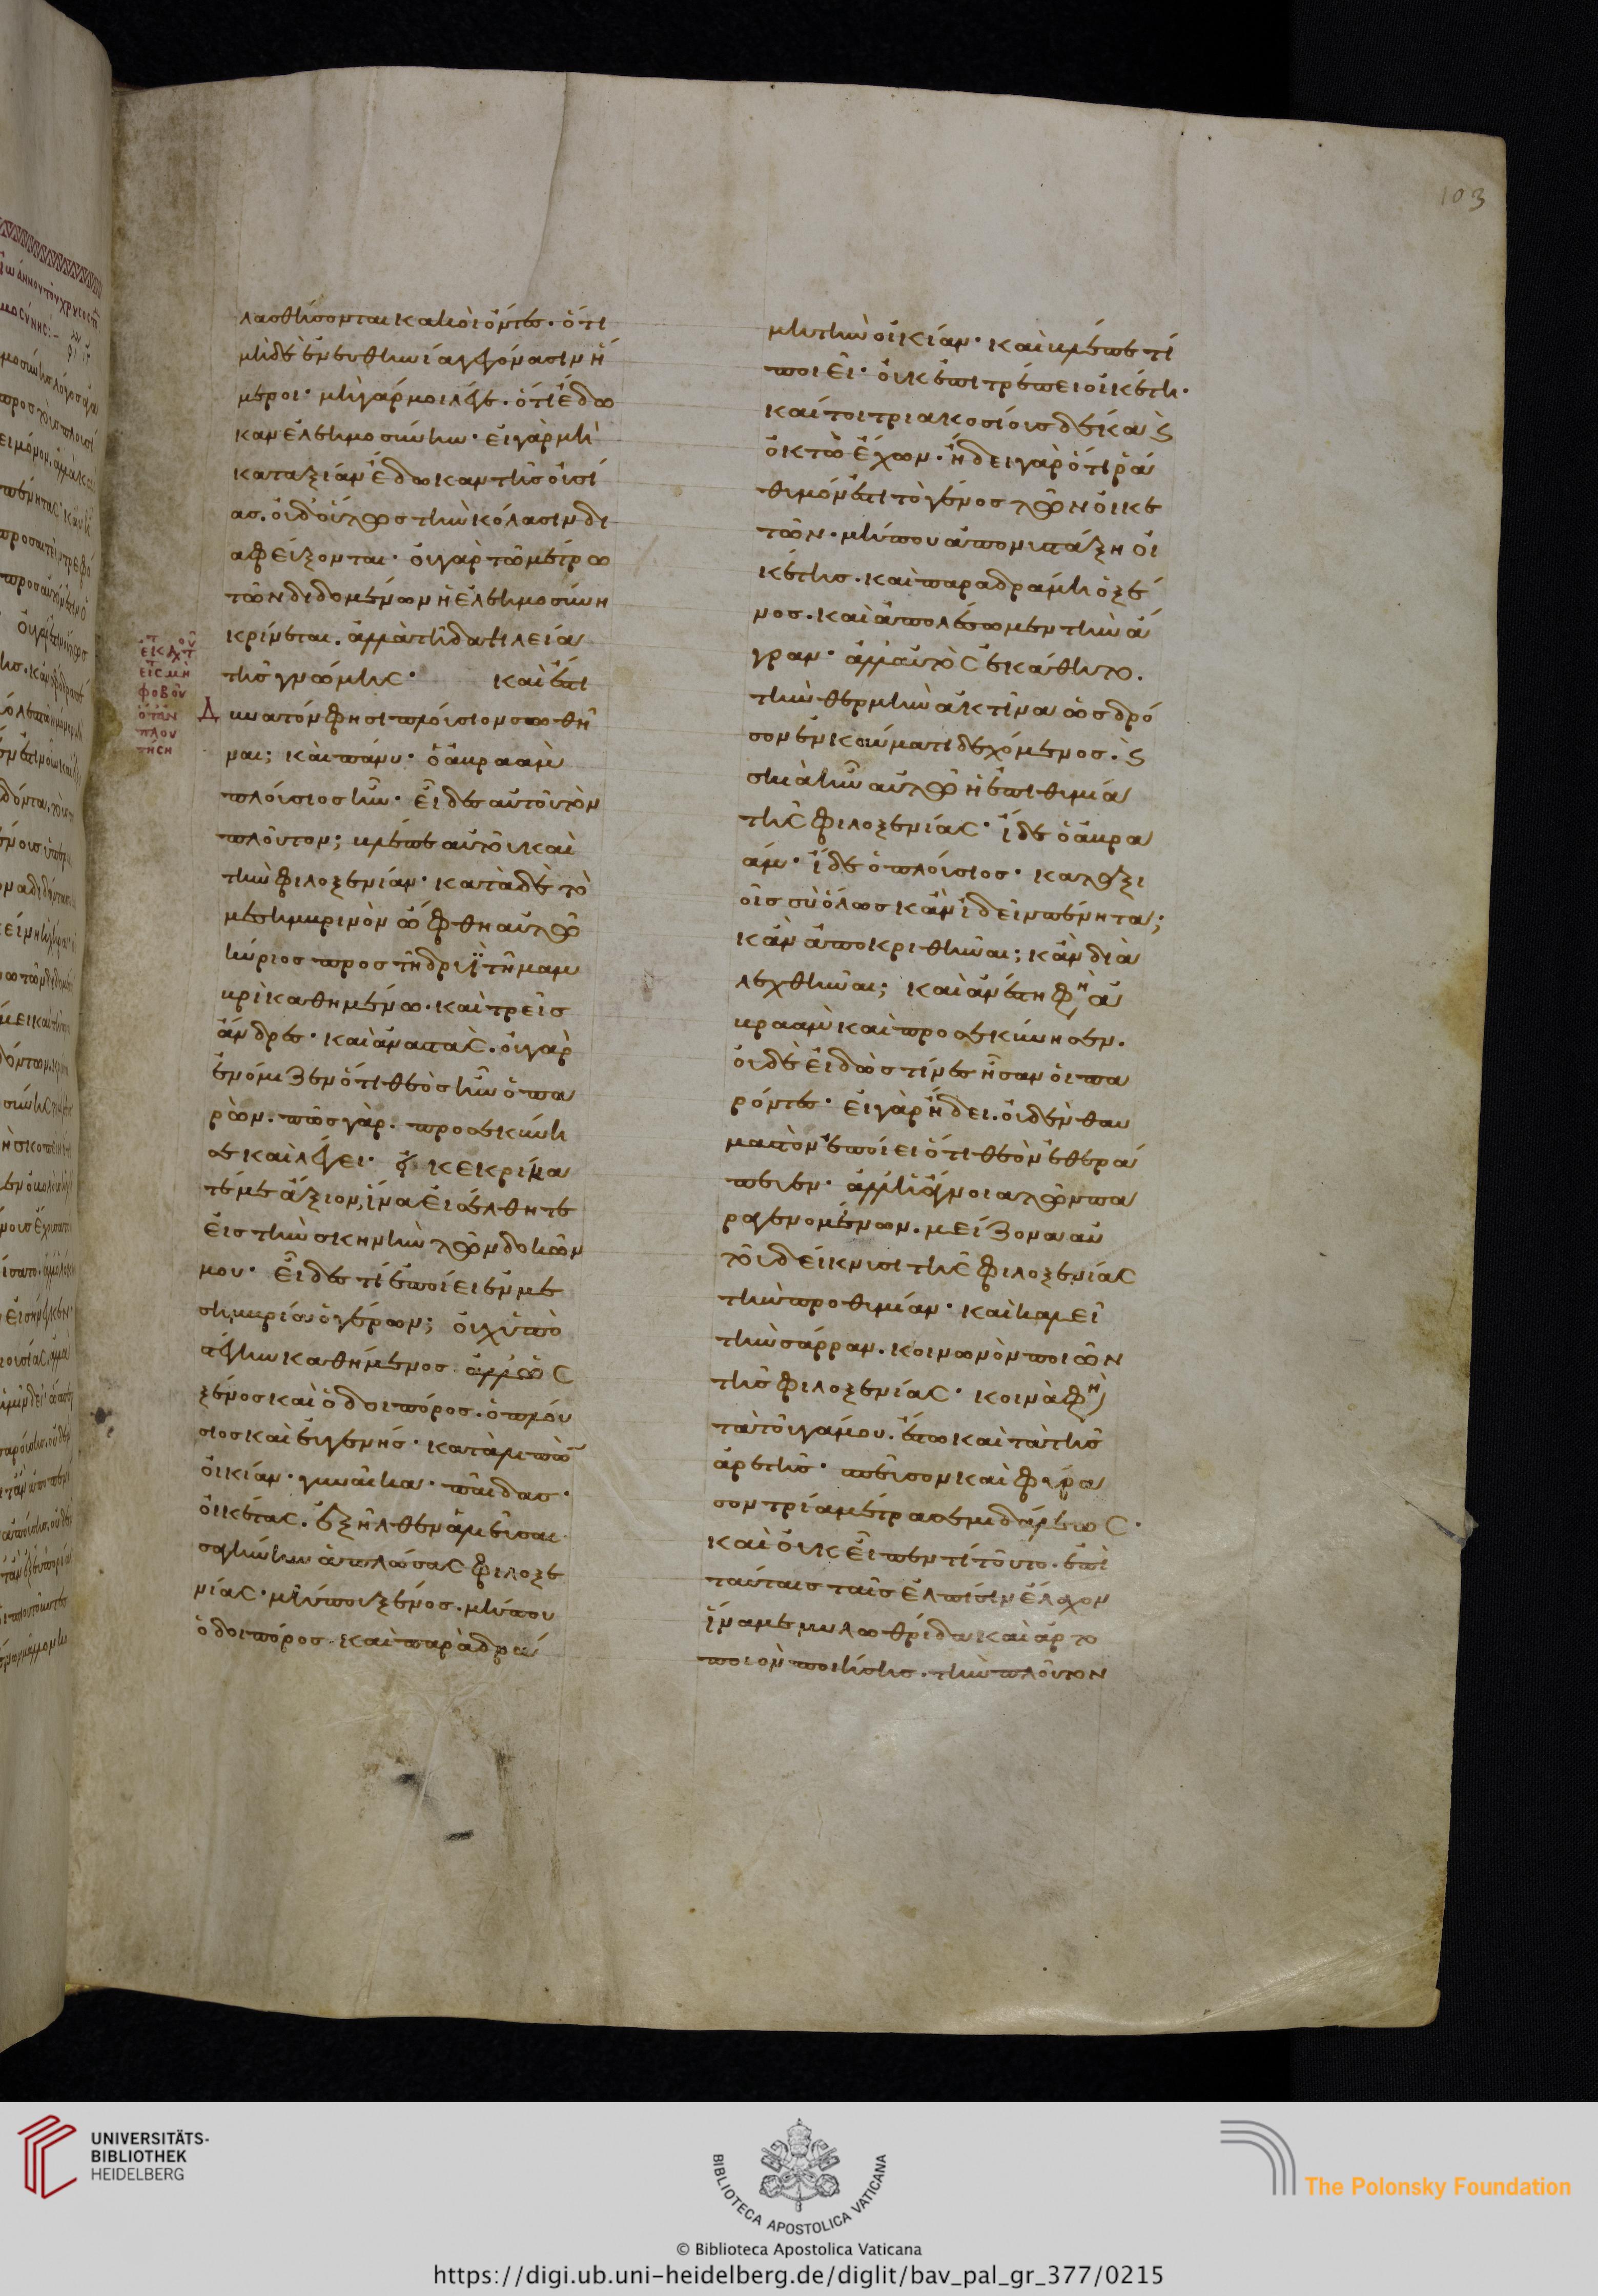 λασθήσονται καὶ οἱ ὄντες· ὅτι
μηδὲ ἐν εὐθηνίᾳ γεγόνασιν ἥ
μεροι· μὴ γάρ μοι λέγε· ὅτι ἔδω
καν ἐλεημοσύνην· εἰ γὰρ μὴ
κατ' ἀξίαν ἔδωκαν τῆς οὐσί
ας· οὐδ' οὕτως τὴν κόλασιν δι
αφεύξονται· οὐ γὰρ τῶ μέτρω
τῶν διδομένων ἡ ἐλεημοσύνη
κρίνεται· ἀλλὰ τῆ δαψιλεία
τῆς γνώμης· καὶ ἔστι
Δ
υνατόν φησι πλούσιον σωθῆ
ναι; καὶ πάνυ· ὁ ἀβραὰμ
πλούσιος ἦν· εἶδες αὐτοῦ τὸν
πλοῦτον; βλέπε αὐτοῦ καὶ
τὴν φιλοξενίαν· κατὰ δὲ τὸ
μεσημβρινὸν ὤφθη αὐτῶ
κύριος προς τῆ δρυῒ τῆ μαμ
βρὶ καθημένω· καὶ τρεῖς
ἄνδρες· καὶ ἀναστὰς· οὐ γὰρ
ἐνόμιζεν ὅτι θεὸς ἦν ὁ πα
ρὼν· πῶς γάρ· προσεκύνη
σε καὶ λέγει· εἰ κεκρίκα
τέ με ἄξιον, ἵνα εἰσέλθητε
εἰς τὴν σκηνὴν τῶν δοκῶν
μου· εἶδες τί ἐποίει ἐν με
σημβρία ὁ γέρων; οὐχ ὑπὸ
στέγην καθήμενος ἀλλ' ὡς
ξένος καὶ ὁδοιπόρος· ὁ πλού
σιος καὶ εὐγενής· καταλιπὼν
οἰκίαν· γυναῖκα· παῖδας·
οἰκέτας· ἐξῆλθεν ἁλιεῦσαι
σαγήνην ἁπλώσας φιλοξε
νίας· μήπου ξένος· μήπου
ὁδοιπόρος· καὶ παραδρά
εἰς μὴ
φοβοῦ
ὅταν
πλου
τήση
103
μη τὴν οἰκίαν· καὶ βλέπε τί
ποιεῖ· οὐκ ἐπιτρέπει οἰκέτη·
καίτοι τριακοσίους δέκα καὶ
ὀκτὼ ἔχων· ἤδει γὰρ ὅτι ῥά
θυμόν ἐστι τὸ γένος τῶν οἰκε
τῶν· μήπου ἀπονυστάξη οἰ
κέτης· καὶ παραδράμη ὁ ξέ
νος· καὶ ἀπολέσωμεν τὴν ἄ
γραν· ἀλλ' αὐτὸς ἐκάθητο·
τὴν θερμὴν ἀκτῖνα ὡς δρό
σον ἐν καύματι δεχόμενος· καὶ
σκιὰ ἦν αὐτῶ ἡ ἐπιθυμία
τῆς φιλοξενίας· ἴδε ὁ ἀβρα
άμ· ἴδε ὁ πλούσιος· καταξι
οῖς σὺ ὅλως κἂν ἰδεῖν πένητα;
κἂν ἀποκριθῆναι; κἂν δια
λεχθῆναι; καὶ ἀνέστη φη ἀ
βραὰμ καὶ προσεκύνησεν·
οὐδὲ εἰδὼς τίνες ἦσαν οἱ πα
ρόντες· εἰ γὰρ ἤδει· οὐδὲν θαυ
μαστὸν ἐποίει ὅτι θεὸν ἐθερά
πευεν· ἀλλ' ἡ ἄγνοια τῶν πα
ραγενομένων· μείζονα αὐ
τοῦ δείκνυσι τῆς φιλοξενίας
τὴν προθυμίαν· καὶ καλεῖ
τὴν σάρραν· κοινωνὸν ποιῶν
τῆς φιλοξενίας· κοινὰ φη
τὰ τοῦ γάμου· ἔστω καὶ τὰ τῆς
ἀρετῆς· σπεῦσον καὶ φύρα
σον τρία μέτρα σεμιδάλεως·
καὶ οὐκ εἶπεν τί τοῦτο· ἐπὶ
ταύταις ταῖς ἐλπίσιν ἔλαχον
ἵνα με μυλωθρίδα καὶ ἀρτο
ποιὸν ποιήσης· τὴν πλοῦτον
UNIVERSITÄTS-
BIBLIOTHEK
HEIDELBERG
BIBLIOTECA APOSTOLICA VATICANA
The Polonsky Foundation
© Biblioteca Apostolica Vaticana
https://digi.ub.uni-heidelberg.de/diglit/bav_pal_gr_377/0215